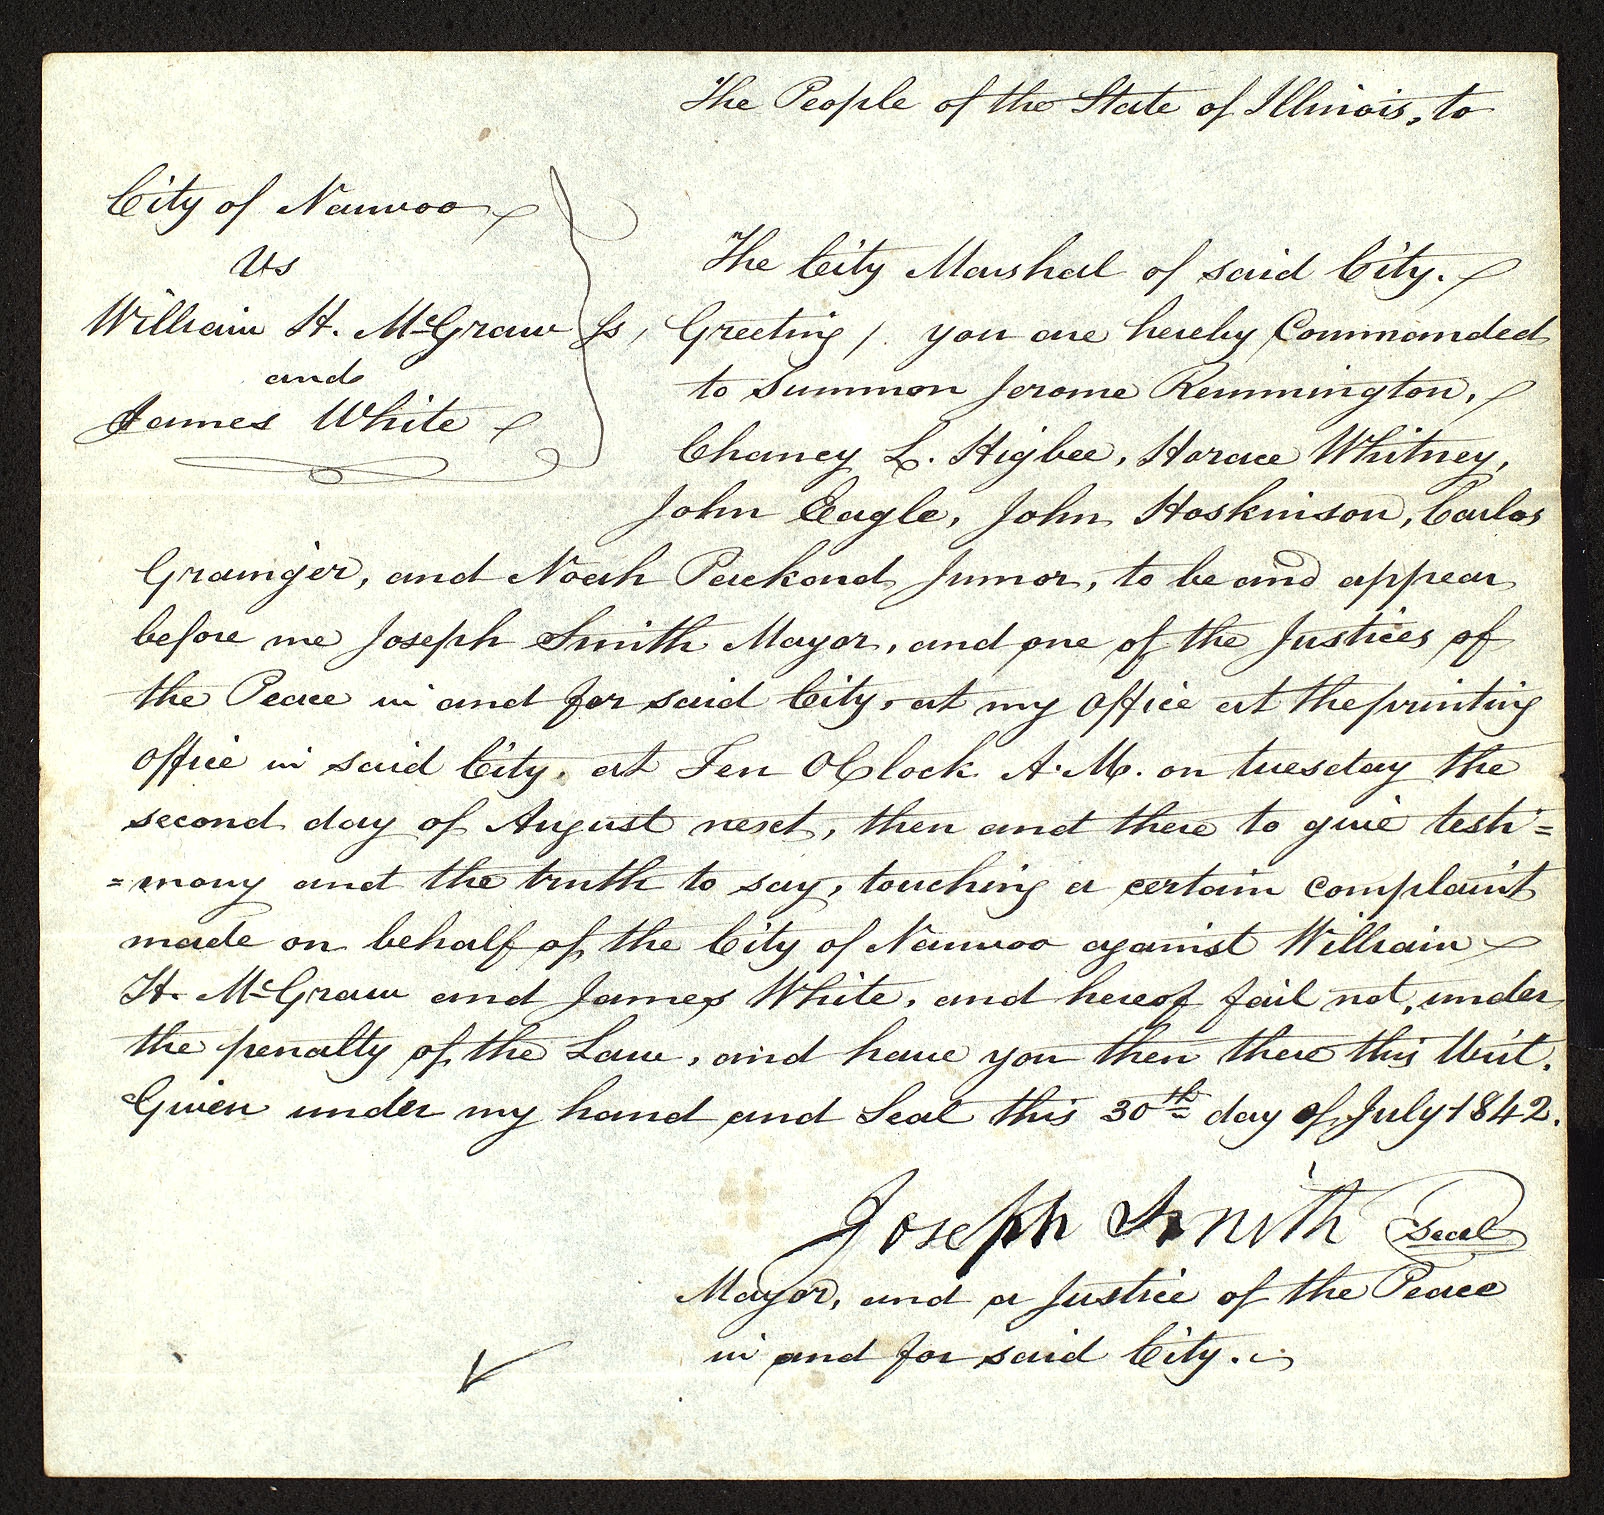 The People of the State of Illinois, to
City of Nauvoo
Vs
William H. McGraw
and
James White
Ss,
The City Marshal of said City.
Greeting/. you are hereby Commanded
to Summon Jerome Remmington,
Chancy L. Higbee, Horace Whitney,
John Eagle, John Hoskinson, Carlos
Grainger, and Noah Packard Junior, to be and appear
before me Joseph Smith Mayor, and one of the Justices of
the Peace in and for said City, at my office at the printing
office in said City, at Ten OClock A.M. on tuesday the
second day of August next, then and there to give testi=
=mony and the truth to say, touching a certain complaint
made on behalf of the City of Nauvoo against William
H. McGraw and James White, and hereof fail not, under
the penalty of the Law, and have you then there this Writ.
Given under my hand and Seal this 30th day of July 1842.
Joseph Smith Seal
Mayor, and a Justice of the Peace
in and for said City.